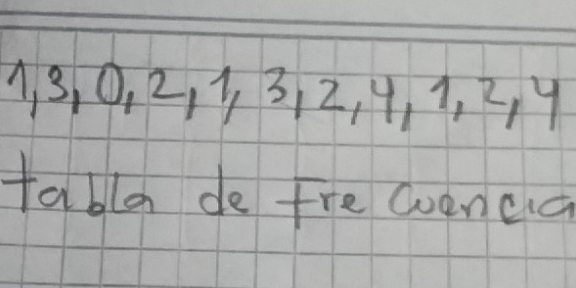 1,3,0,2,1,3,2,4,1,2,4
tabla de frecuencia